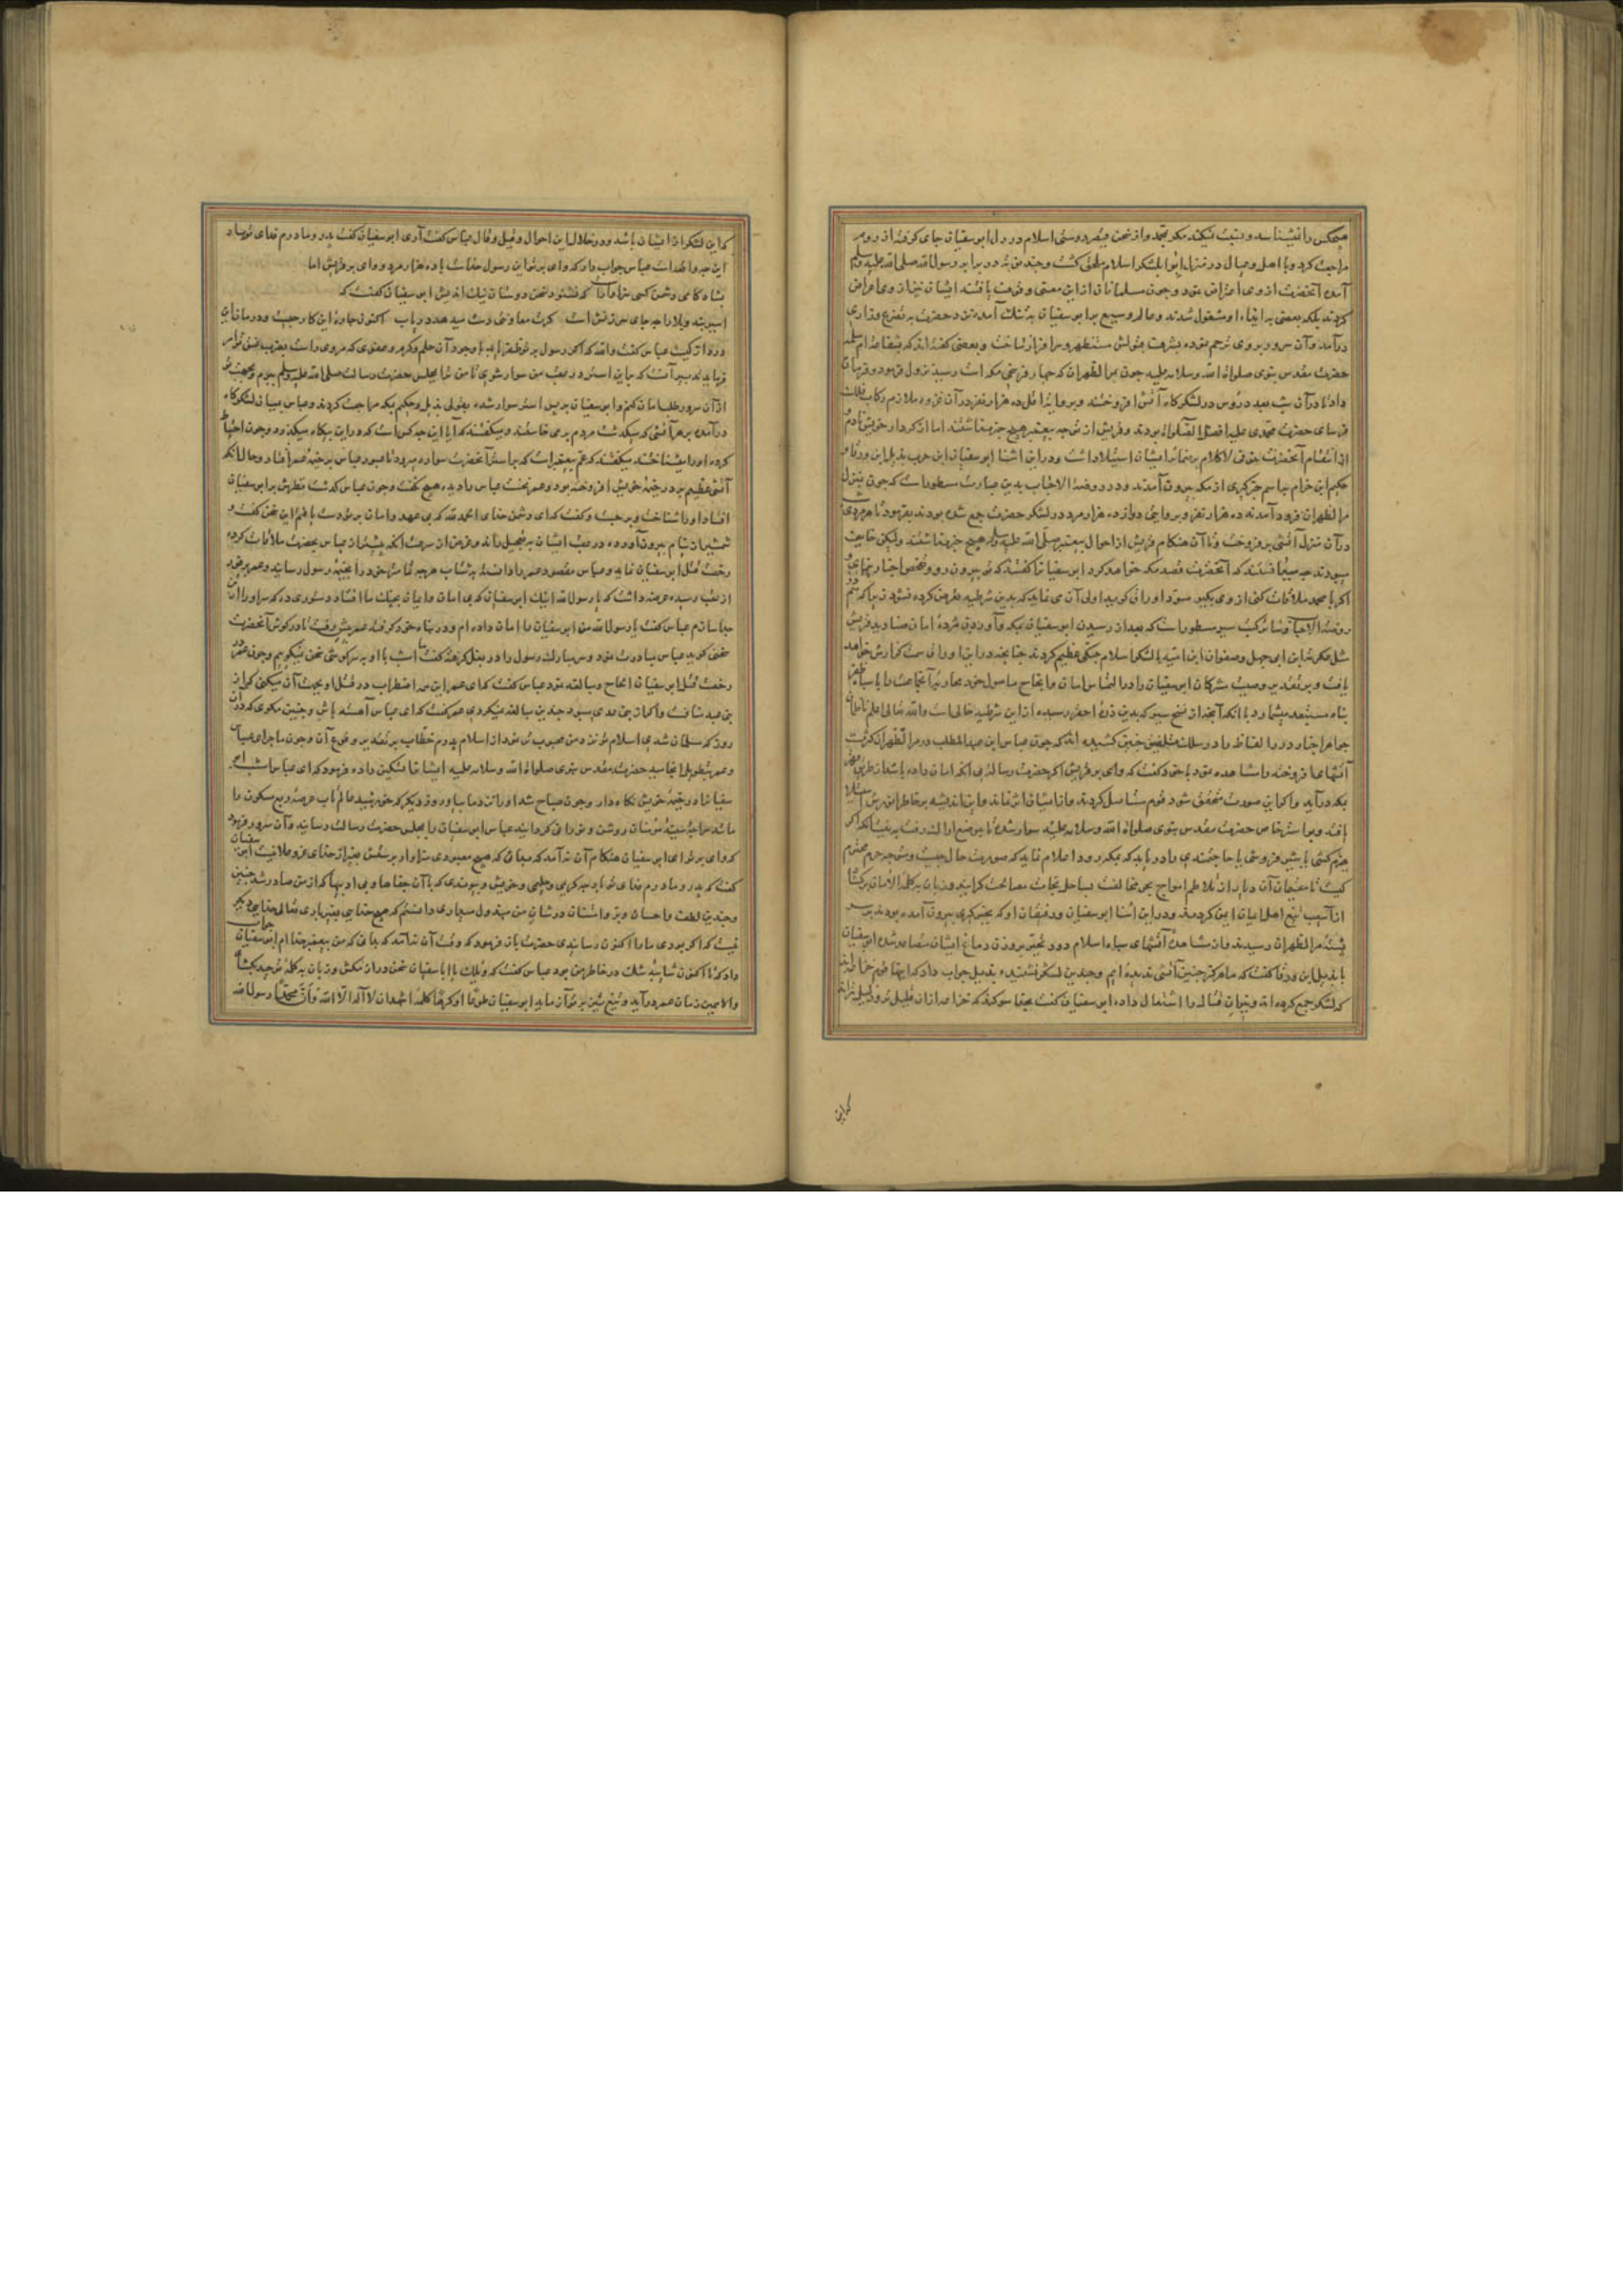 هیچکس را نشناسد و بتبت نکند مکر محمد و از سخن قیصر دوستی اسلام در دل ابو سفیان جای کرفته از روم
مراجعت کرد و با اهل و عیال در منزل ابوا بلشکر اسلام ملحق کشت و چند نوبت در برابر رسول الله صلی الله علیه وسلم
آمده آنحضرت از وی اعراض نمود و چون مسلمانان از این معنی وقوف یافتند ایشان نیز از وی اعراض
کردند بلکه بعضی به ایذاء او مشغول شدند و عالم وسیع بر ابو سفیان به تنک آمده نزد حضرت به تضرع و زاری
درآمد و آن سرور بر وی ترحم نموده بشرف قبولش مستظهر و سرافراز ساخت و بعضی کفته اند که بشفاعة ام سلمه
حضرت مقدس نبوی صلواة الله وسلامه علیه چون بمر الظهران که چهار فرسخی مکه است رسید نزول فرمود و فرمان
داد تا در آن شب بعدد رؤس در لشکرکاه آتش افروختند و بروایة اقل ده هزار نفر در آن غزوه ملازم رکاب فلک
فرسای حضرت محمدی علیه افضل الصلواة بودند و قریش از توجه پیغمبر هیچ خبر نداشتند اما از کردار خویش نادم
از انتقام آنحضرت خوفی لا کلام بر ضمائر ایشان استیلا داشت و در این اثنا ابو سفیان ابن حرب بدیل ابن ورقا و
حکیم ابن خزام بباسم خبرکیری از مکه بیرون آمدند و در روضة الاحباب بدین عبارت مسطور است که چون بمنزل
مر الظهران فرود آمدند ده هزار نفر و بروایتی دوازده هزار مرد در لشکر حضرت جمع شده بودند بفرمود تا هر مردی
در آن منزل آتشی بر فروخت و تا آن هنکام قریش از احوال پیغمبر صلی الله علیه وسلم هیچ خبر نداشتند ولیکن خایف
می‌بودند چه میدانستند که آنحضرت قصد مکه خواهد کرد ابو سفیان را کفتند که تو بیرون رو و تفحص اخبار نمای
اکر با محمد ملاقات کنی از وی بکیر
روضة الاحباب و سائر کتب سیر مسطور است که بعد از رسیدن ابو سفیان بمکه و آوردن مژدهٔ امان صنادید قریش
مثل عکرمه ابن ابی جهل و صفوان ابن امیه با لشکر اسلام جنکی عظیم کردند چنانچه در این اوراق سمت کذارش خواهد
یافت و بر تقدیر وصیت مشرکان ابو سفیان را در التماس امان و انجاح مأمول خود
بناه مستبعد مینماید با انکه آنچه از نسخ سیر که بدین ذرهٔ احقر رسیده از این شرطیه خالی است والله تعالی اعلم
جواهر اخبار درر الفاظ را در سلک تلفیق چنین کشیده اند که چون عباس ابن عبد المطلب در مر الظهران کثرت
آتشها افروخته را مشاهده نمود با خود کفت که وای بر قریش اکر حضرت رسالة بی انکه امان داده باشد از طریق
بمکه درآید و اکر این صورت متحقق شود قوم مستأصل کردند و از ایشان اثر نماند و این اندیشه بر خاطرش
یافته و بر استر خاص حضرت مقدس نبوی صلواة الله وسلامه علیه سوار شده تا بموضع اراک رفت به نیت انکه اکر
هیزم کشی یا شیر فروشی یا حاجتمندی را دریابد که بمکه رود اعلام نماید که صورت حال چیست
از آسیب تیغ اهل ایمان ایمن کردند و در این اثنا ابو سفیان و رفیقان او که بخبر کیری بیرون آمده بودند
پشتهٔ مر الظهران رسیدند و از مشاهدهٔ آتشهای سپاه اسلام دود تحیر بروزن دماغ ایشان متصاعد شده ابو سفیان
با بدیل ابن ورقا کفت که ما هرکز چنین آتشی ندیده ایم و چندین لشکر نشنیده بدیل جواب داد که اینها قوم خزاعه اند
که لشکر جمع کرده اند و نیران قتال را اشتعال داده ابو سفیان کفت بخدا سوکند که خزاعه از آن قلیل تر و ذلیل تراند
که این
که این لشکر از ایشان باشد و در خلال این احوال و قیل و قال عباس کفت آری ابو سفیان کفت پدر و مادرم فدای تو باد
این چه واقعه است عباس جواب داد که وای بر تو این رسول خداست با ده هزار مرد و وای بر قریش اما
بشادکامی دشمن کسی سزاوار است که نشنود سخن دوستان نیک اندیش ابو سفیان کفت که
اسیر بند بلا را چه جای سرزنش است کرت معاونتی دست میدهد دریاب اکنون چارهٔ این کار چیست و درمان این
درد از کیست عباس کفت والله که اکر رسول بر تو ظفر یابد با وجود آن حلم و کرم و عفوی که مر وی راست بضرب عنق تو امر
فرماید تدبیر آنست که باین استر در عقب من سوار شوی تا من ترا بمجلس حضرت رسالت صلی الله علیه وسلم برم و بجهت تو
از آن سرور طلب امان کنم و ابو سفیان بر پس استر سوار شده بقولی بدیل و حکیم بمکه مراجعت کردند و عباس بمیان لشکرکاه
درآمده بر هر آتشی که میکذشت مردم بر می خاستند و میکفتند که آیا این چه کس است که در این بیکاه میکذرد و چون احتیاط
کرده او را میشناختند میکفتند که عم پیغمبر است که بر استر آنحضرت سواره میرود تا عبور عباس بر خیمهٔ عمر افتاد و حال انکه
آتشی عظیم بر در خیمهٔ خویش افروخته بود و عمر نخست عباس را دیده هیچ نکفت و چون عباس کذشت نظرش بر ابو سفیان
افتاد او را شناخت و بر جست و کفت که ای دشمن خدای الحمد لله که بی عهد و امان بر تو دست یافتم این سخن کفت و
شمشیر از نیام بیرون آورده در عقب ایشان به تعجیل راند و غرض از سرعت انکه پیشتر از عباس بحضرت ملاقات کرده
رخصت قتل ابو سفیان نماید و عباس مقصود عمر را دانسته به شتاب هرچه تمامتر خود را بخیمهٔ رسول رسانید و عمر بر فور
از عقب رسیده عرضه داشت که یا رسول الله اینک ابو سفیان که بی امان و ایمان بچنک ما افتاد دستوری ده که سر او را از تن
جدا سازم عباس کفت یا رسول الله من ابو سفیان را امان داده ام و در پناه خود کرفته عمر پیش رفت تا در کوش آنحضرت
سخنی کوید عباس مبادرت نمود و سر مبارک رسول را در بغل کرفته کفت امشب با او به سرکوشی سخن نمیکویم و چون عمر در
رخصت قتل ابو سفیان الحاح و مبالغه نمود عباس کفت که ای عمر این همه اضطراب در قتل او بجهت آن میکنی که او از
بنی عبد مناف است و اکر از بنی عدی میبود چندین مبالغه نمیکردی عمر کفت که ای عباس آهسته باش و چنین مکوی که در آن
روز که مسلمان شدی اسلام تو نزد من محبوب تر بود از اسلام پدرم خطاب بر تقدیر وقوع آن و چون ماجرای عباس
و عمر بتطویل انجامید حضرت مقدس نبوی صلواة الله وسلامه علیه ایشان را تسکین داده فرمود که ای عباس امشب ابو
سفیان را در خیمهٔ خویش نکاه دار و چون صباح شد او را نزد ما بیار و روز دیکر که خورشید عالمتاب عرصهٔ ربع مسکون را
مانند سینهٔ مؤمنان روشن و نورانی کردانید عباس ابو سفیان را بمجلس حضرت رسالت رسانید و آن سرور فرمود
که وای بر تو ای ابو سفیان هنکام آن نیامد که بدانی که هیچ معبودی سزاوار پرستش بغیر از خدای عز و علا نیست ابو سفیان
کفت که پدر و مادرم فدای تو باد چه کریمی و حلیمی و خویش پیوندی که با آن جفاها و بی ادبیها که از من صادر شد چنین
و چندین لطف و احسان
نیست که اکر بودی ما را اکنون مدد رسانیدی حضرت باز فرمود که وقت آن نیامد که بدانی که من پیغمبر خدا ام ابو سفیان جواب
داد که تا اکنون شائبهٔ شک در خاطر من بود عباس کفت که ویلک یا ابا سفیان سخن دراز مکش و زبان به کلمهٔ توحید بکشا
والا همین زمان عمر درآید و تیغ تیز بر تو آزماید ابو سفیان طوعا او کرها کلمهٔ اشهد ان لا اله الا الله وان محمدا رسول الله